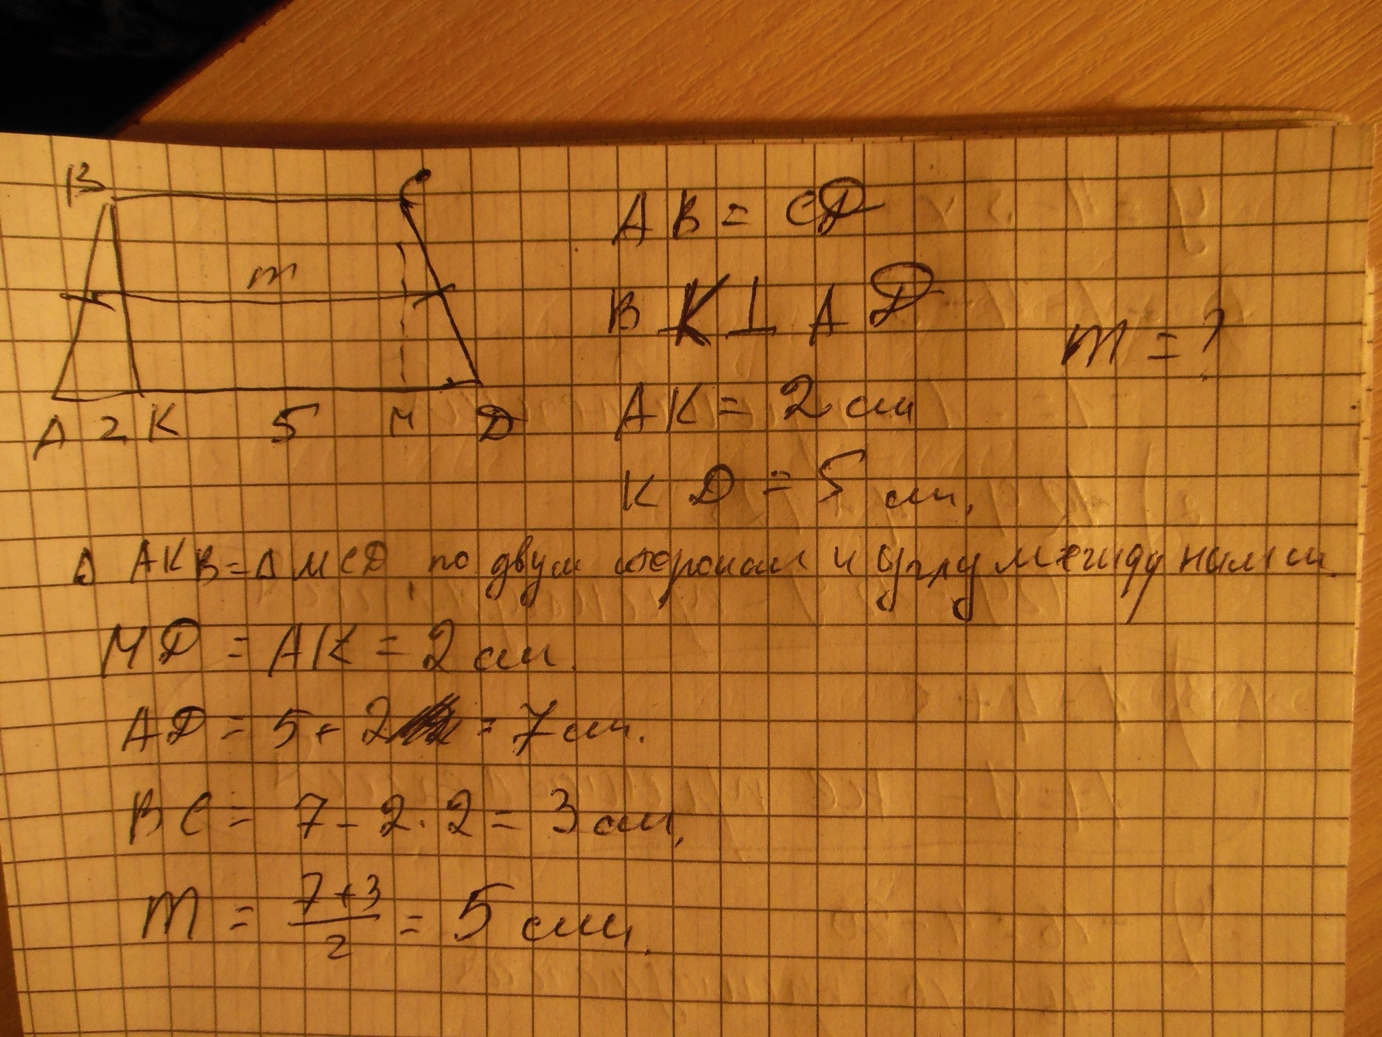 B C
m
A 2 K 5 M D
AB = CD
BK ⊥ AD
m = ?
AK = 2 см
KD = 5 см.
Δ AKB = Δ MCD по двум сторонам и углу между ними.
MD = AK = 2 см.
AD = 5 + 2 = 7 см.
BC = 7 - 2 · 2 = 3 см.
m = (7+3)/2 = 5 см.